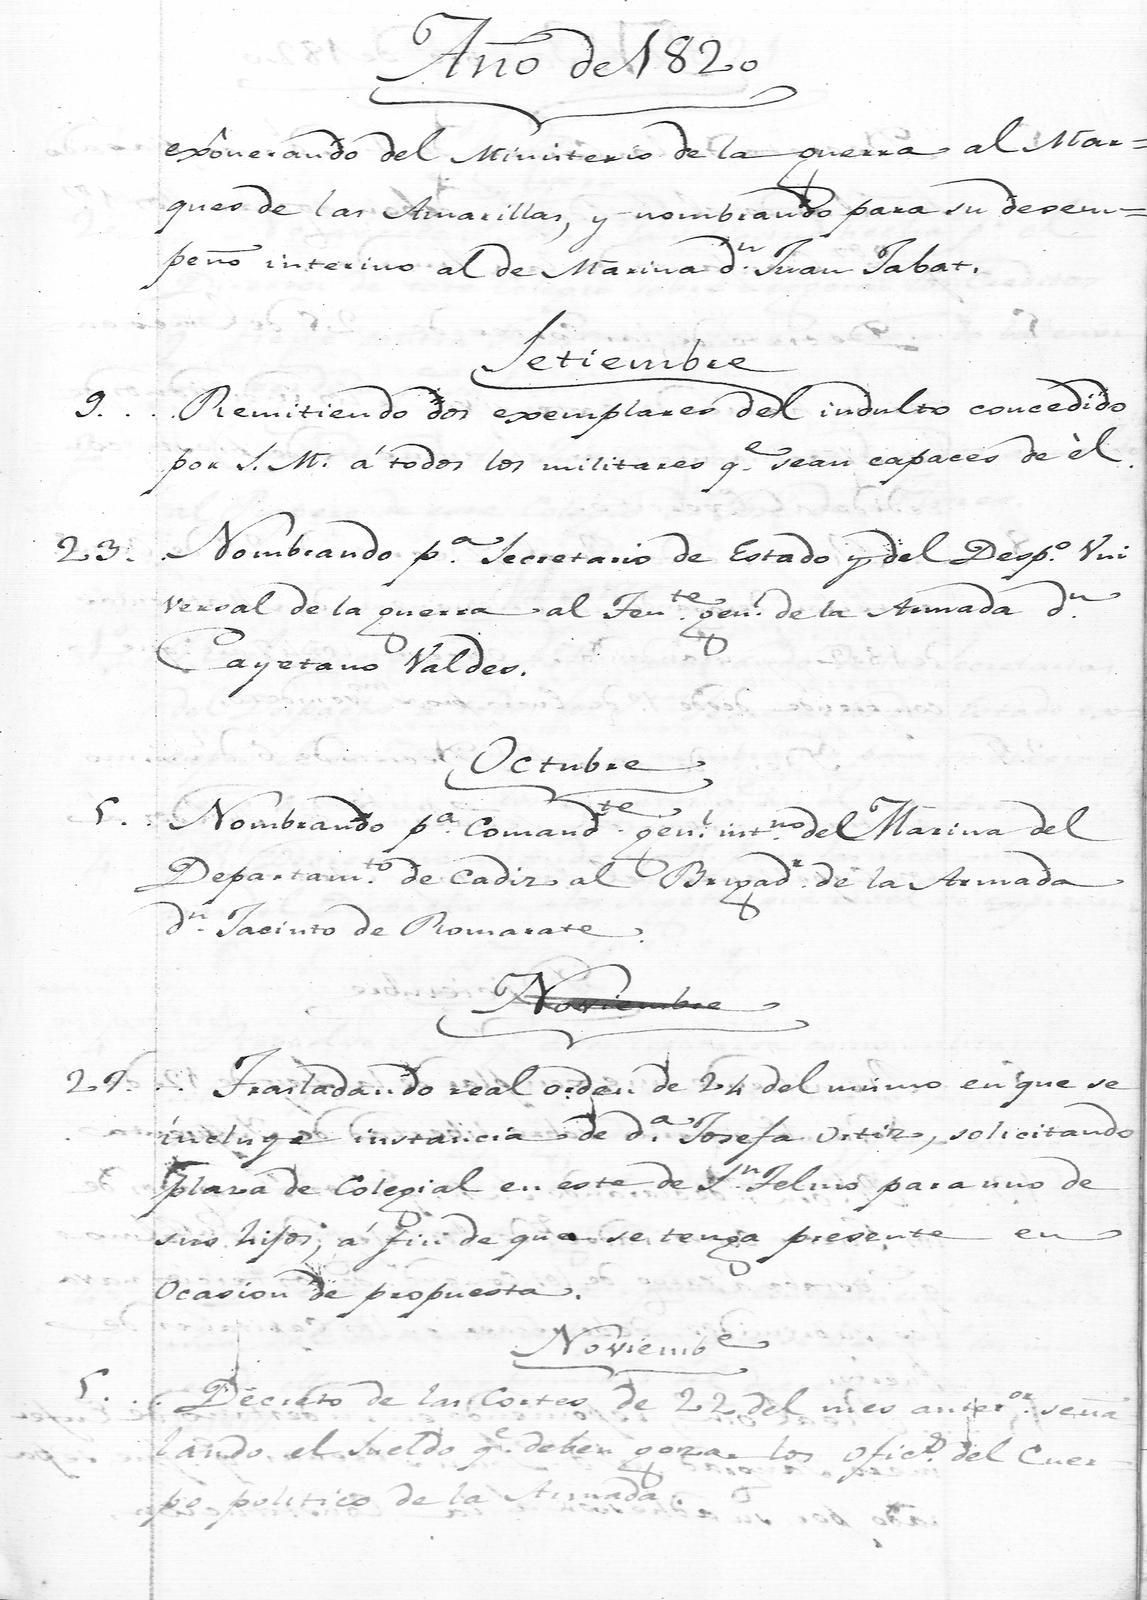 Año de 1820
exônerando del Ministerio de la guerra al Mar=
ques de las Amarillas, y nombrando para su desem=
peño interino al de Marina dn. Juan Jabat.
Setiembre
9. . . . Remitiendo dos exemplares del indulto concedido
por S. M. á todos los militares qe. sean capaces de èl.
23. . Nombrando pa. Secretario de Estado y del Despo. Vni
versal de la guerra al Tente. genl. de la Armada dn.
Cayetano Valdes.
Octubre
5. . . Nombrando pa. Comandte. genl. intno. del Marina del
Departamto. de Cadiz al Brigadr. de la Armada
dn. Jacinto de Romarate.
Noviembre
27. . . Trasladando real orden de 24 del mismo en que se
incluye instancia de da. Josefa Ortiz, solicitando
plaza de Colegial en este de Sn. Telmo para uno de
sus hijos, á fin de que se tenga presente en
Ocasion de propuesta.
Noviembe
5. . . Decreto de las Cortes de 22 del mes anteror. seña
lando el sueldo qe. deben gozar los ofics. del Cuer-
po politico de la Armada